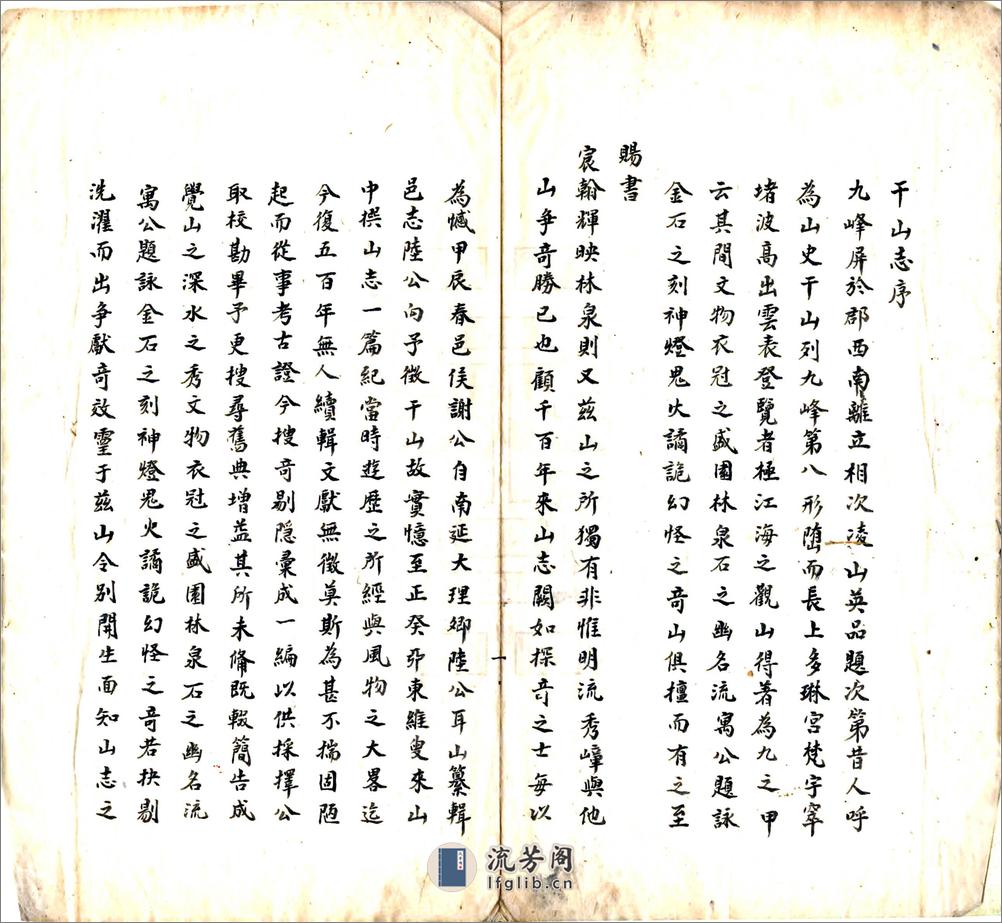 干山志序
九峰屏於郡西南離立相次淩山英品題次第昔人呼
為山史干山列九峰第八形墮而長上多琳宮梵宇窣
堵波高出雲表登覽者極江海之觀山得著為九之甲
云其間文物衣冠之盛園林泉石之幽名流寓公題詠
金石之刻神燈鬼火譎詭幻怪之奇山俱擅而有之至
賜書
宸翰輝映林泉則又茲山之所獨有非惟明流秀嶂與他
山爭奇勝已也顧千百年來山志闕如探奇之士每以
為憾甲辰春邑侯謝公自南延大理卿陸公耳山纂輯
邑志陸公向予徵干山故實憶至正癸夘東維叟來山
中撰山志一篇紀當時遊歷之所經與風物之大畧迄
今復五百年無人續輯文獻無徵莫斯為甚不揣固陋
起而從事考古證今搜奇剔隱彙成一編以供採擇公
取校勘畢予更搜尋舊典增益其所未備既輟簡告成
覺山之深水之秀文物衣冠之盛園林泉石之幽名流
寓公題詠金石之刻神燈鬼火譎詭幻怪之奇若抉剔
洗濯而出爭獻奇效靈于茲山令別開生面知山志之
一
流芳阁
lfglib.cn